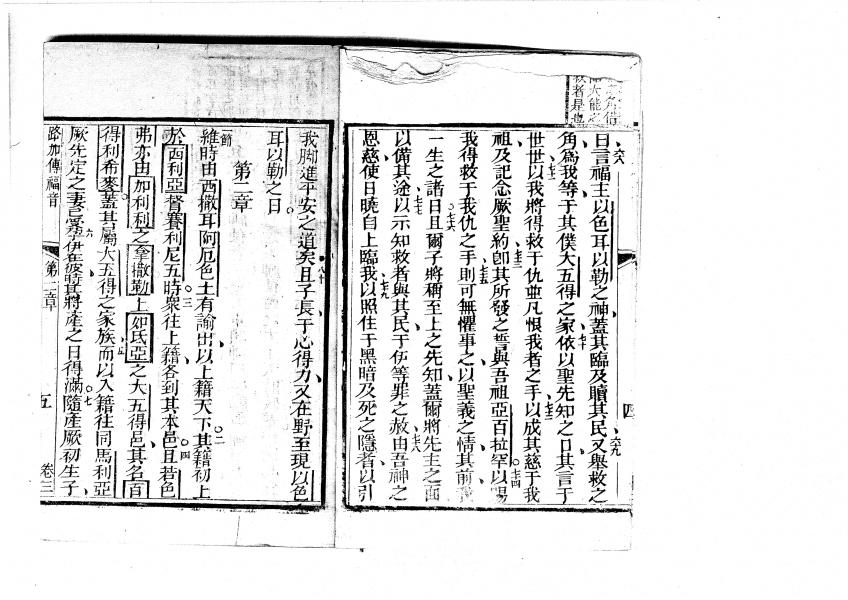 角借
大能之
救者是也
六八
曰言福主以色耳以勒之神蓋其臨及贖其民又舉救之
六九
角為我等于其僕大五得之家依以聖先知之口其言于
七十
世世以我將得救于仇並凡恨我者之手以成其慈于我
七一
七二
祖及記念厥聖約卽其所發之誓與吾祖亞百拉罕以賜
七三
七四
我得救于我仇之手則可無懼事之以聖義之情其前
七五
一生之諸日且爾子將稱至上之先知蓋爾將先主之面
七六
以備其途以示知救者與其民于伊等罪之赦由吾神之
七七
七八
恩慈使日曉自上臨我以照住于黑暗及死之隱者以引
七九
四
我脚進平安之道矣且子長于心得力又在野至現以色
八十
耳以勒之日
第二章
節
維時由西撒耳阿厄色土有諭出以上籍天下其籍初上
二
於西利亞督賽利尼五時衆往上籍各到其本邑且若色
三
四
弗亦由加利利之拿撒勒上如氏亞之大五得邑其名百
得利希麥蓋其屬大五得之家族而以入籍往同馬利亞
五
厥先定之妻已受孕伊在彼時其將產之日得滿隨產厥初生子
六
七
路加傳福音
第二章
五
卷三